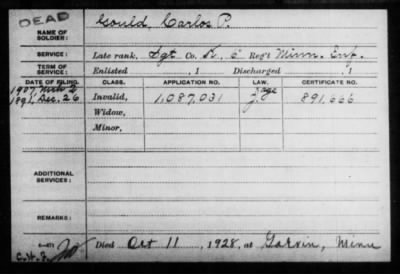 DEAD
NAME OF SOLDIER: Gould, Carlos P.
SERVICE: Late rank, Sgt Co. K, 6 Reg't Minn. Inf.
TERM OF SERVICE: Enlisted , 1 Discharged , 1
DATE OF FILING. CLASS. APPLICATION NO. LAW. CERTIFICATE NO.
1907, Mch 2 age
1891, Dec. 26 Invalid, 1,087,031 J. 891,666
Widow,
Minor,
ADDITIONAL SERVICES:
REMARKS:
Died Oct 11, 1928, at Garvin, Minn